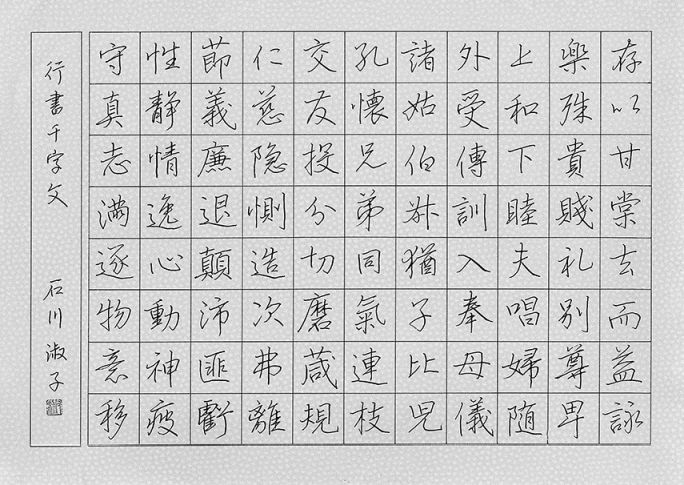 存以甘棠去而益詠
樂殊貴賤礼別尊卑
上和下睦夫唱婦随
外受傳訓入奉母儀
諸姑伯叔猶子比児
孔懐兄弟同氣連枝
交友投分切磨箴規
仁慈隐惻造次弗離
節義廉退顛沛匪虧
性静情逸心動神疲
守真志満逐物意移
行書千字文 石川淑子